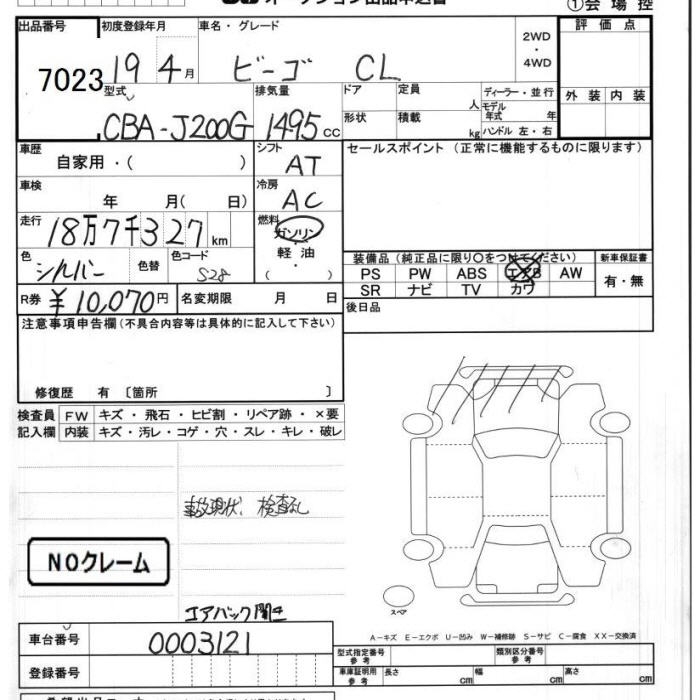 オークション出品申込書
①会場控
出品番号 初度登録年月 車名・グレード 評価点
7023 19 4月 ビーゴ CL 2WD・4WD
外装 内装
型式 排気量 ドア 定員 人 ディーラー・並行
CBA-J200G 1495 CC 形状 積載 kg モデル年式 年
ハンドル 左・右
車歴 シフト セールスポイント（正常に機能するものに限ります）
自家用・( ) AT
車検 冷房
年 月( 日) AC
走行 燃料
18万7千327 km ガソリン
軽油
( )
色 色替 色コード
シルバー S28
装備品（純正品に限り○をつけてください） 新車保証書
PS PW ABS エアB AW 有・無
SR ナビ TV カワ
R券 ¥10,070円 名変期限 月 日
後日品
注意事項申告欄（不具合内容等は具体的に記入して下さい）
修復歴 有 〔箇所 〕
検査員 FW キズ・飛石・ヒビ割・リペア跡・×要
記入欄 内装 キズ・汚レ・コゲ・穴・スレ・キレ・破レ
事故現状、検査なし
NOクレーム
エアバック開き
スペア
A－キズ E－エクボ U－凹み W－補修跡 S－サビ C－腐食 XX－交換済
車台番号 0003121
型式指定番号 参考 類別区分番号 参考
登録番号
車庫証明用 参考 長さ cm 幅 cm 高さ cm